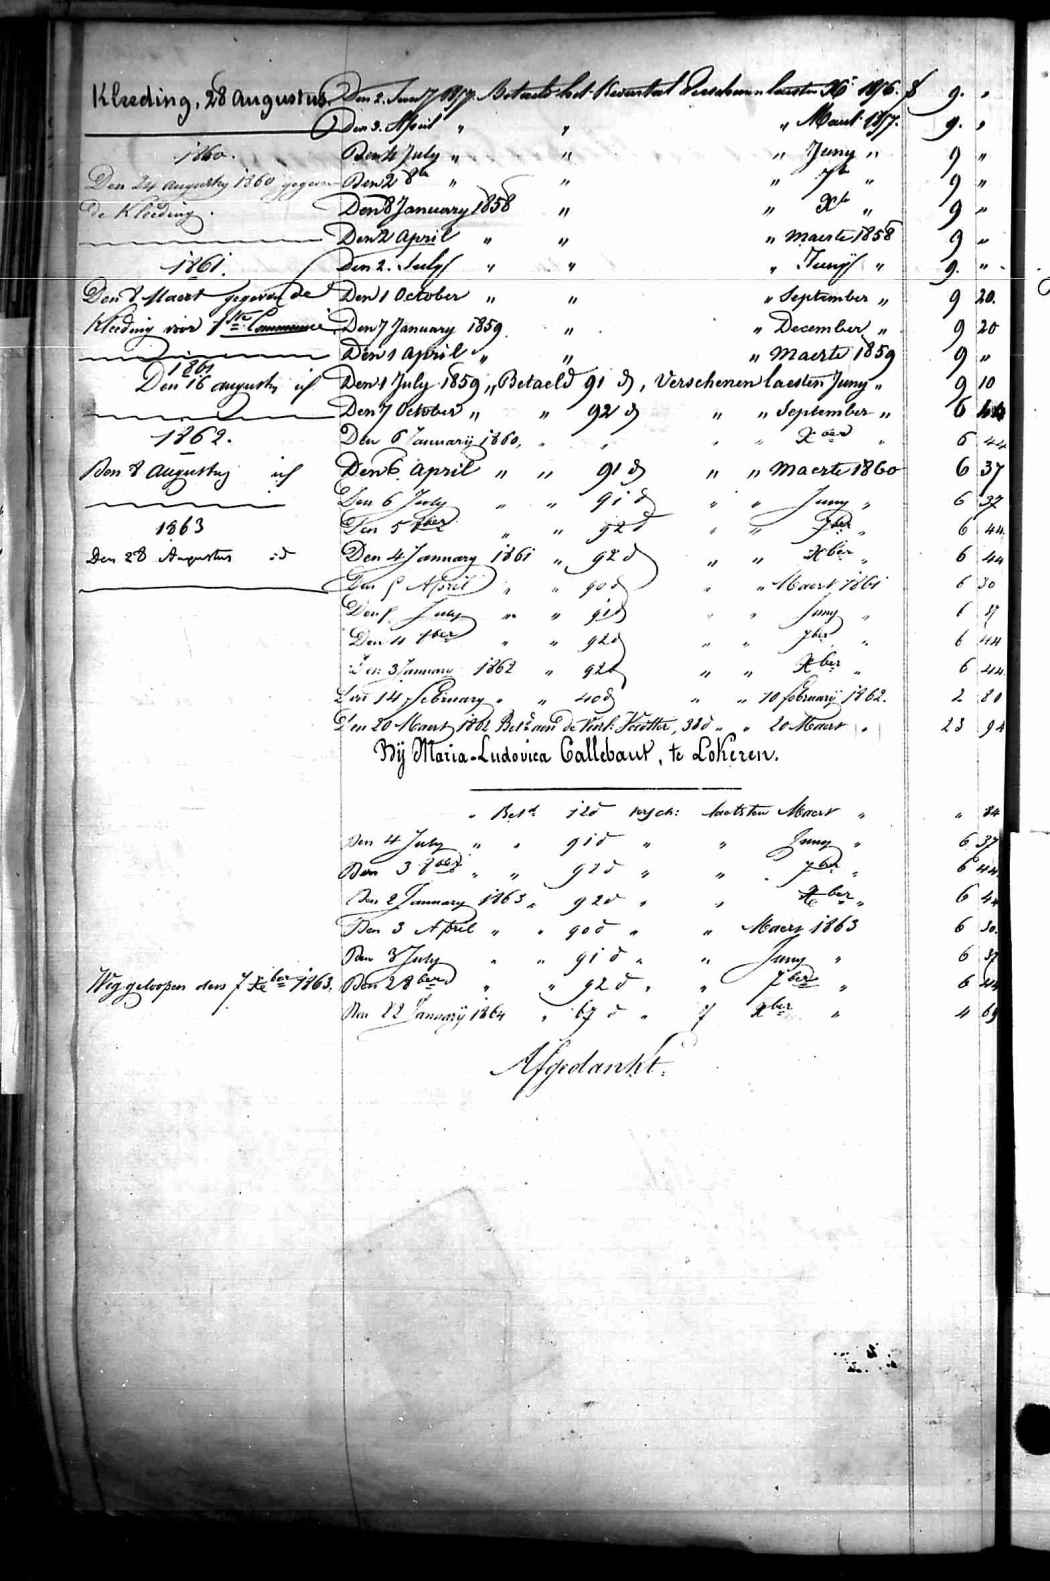 Kleeding, 28 Augustus.
1860.
Den 24 augusty 1860 gegeven
de Kleeding.
1861.
Den 8 Maert gegeven de
Kleeding voor 1ste Communie
1861
Den 16 augusty id
1862.
Den 8 Augustus id
1863
Den 28 Augustus id
Weggeloopen den 7 Xber 1863.
Den 2. January 1857. Betaeld het Kwartael Verschenen laesten Xb 1856. f 9. "
Den 3. April " " " Maert 1857. 9. "
Den 4 July " " " Juny " 9 "
Den 2 8br " " " 7br " 9 "
Den 8 January 1858 " " Xbr " 9 "
Den 2 April " " " Maerte 1858 9 "
Den 2. July " " " Junij " 9. "
Den 1 October " " " September " 9 20.
Den 7 January 1859 " " December " 9 20
Den 1 April " " " Maerte 1859 9 "
Den 1 July 1859 " Betaeld 91 d, Verschenen laesten Juny " 9 10
Den 7 October " " 92 d " " September " 6 44
Den 6 Januarij 1860, " " " " Xber " 6 44
Den 6. April " " 91 d " " Maerte 1860 6 37
Den 6 July " " 91 d " " Juny " 6 37
Den 5 8ber " " 92 d " " 7ber " 6 44
Den 4 January 1861 " 92 d " " Xber " 6 44
Den 5 April " " 90 d " Maert 1861 6 30
Den 5 July " " 91 d " " Juny " 6 37
Den 4 8ber " " 92 d " " 7ber " 6 44
Den 3 January 1862 " 92 d " " Xber " 6 44
Den 14 February " " 40 d " " 10 februarij 1862. 2 80
Den 20 Maert 1862 Betd aen de 38 d " " 20 Maert " 23 94
Bij Maria-Ludovica Callebaut, te Lokeren.
" Betd 12 d versch: laetsten Maert " " 84
Den 4 July " " 91 d " " Juny " 6 37
Den 3 8ber " " 92 d " " 7ber " 6 44
Den 2 January 1863 " 92 d " " Xber " 6 44
Den 3 April " " 90 d " " Maert 1863 6 30.
Den 3 July " " 91 d " " Juny " 6 37
Den 2 8ber " " 92 d " " 7ber " 6 44
Den 22 Januarij 1864 " 67 d " 7 Xber " 4 69
Afgedankt.